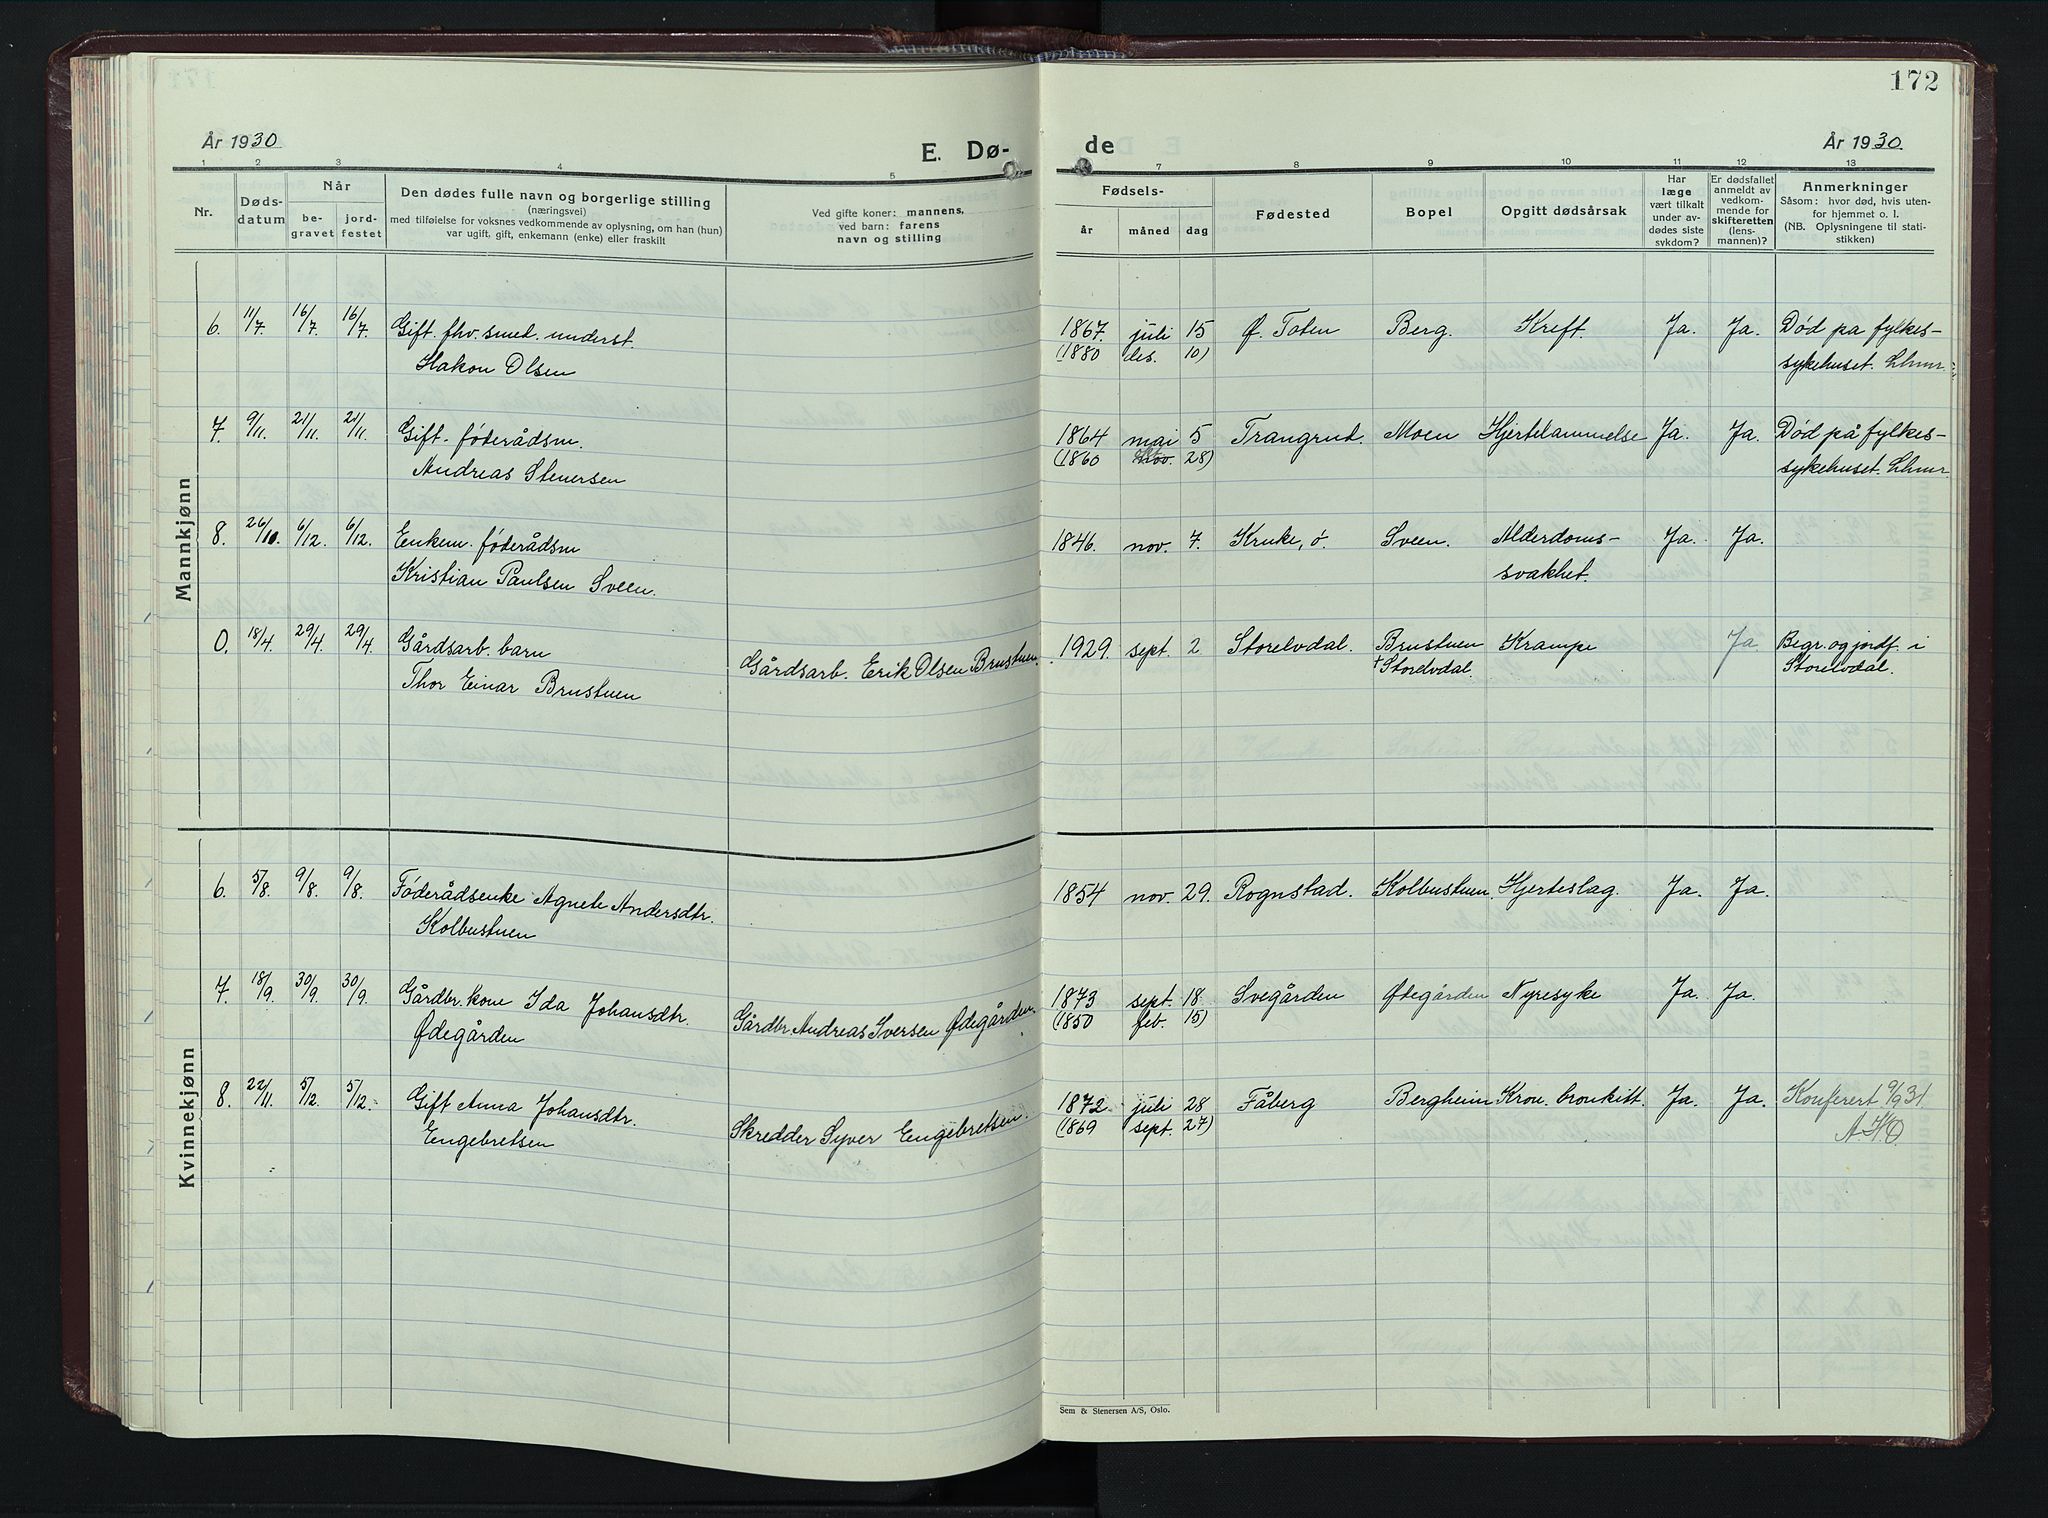 172
År 1930
E. Dø-
de
År 1930
1 2 3 4 5 7 8 9 10 11 12 13
Nr.
Døds-
datum
Når
be-
gravet
jord-
festet
Den dødes fulle navn og borgerlige stilling
(næringsvei)
med tilføielse for voksnes vedkommende av oplysning, om han (hun)
var ugift, gift, enkemann (enke) eller fraskilt
Ved gifte koner: mannens,
ved barn: farens
navn og stilling
Fødsels-
år måned dag
Fødested
Bopel
Opgitt dødsårsak
Har
læge
vært tilkalt
under av-
dødes siste
sykdom?
Er dødsfallet
anmeldt av
vedkom-
mende for
skifteretten
(lens-
mannen)?
Anmerkninger
Såsom: hvor død, hvis uten-
for hjemmet o. l.
(NB. Oplysningene til stati-
stikken)
Mannkjønn
6. 11/7. 16/7. 16/7. Gift. fhv. smed. underst. 1867. juli 15 Ø. Toten Berg. Kreft. Ja. Ja. Død på fylkes-
Hakon Olsen (1880 des. 10) sykehuset. Lhmr.
7. 9/11. 21/11. 21/11. Gift. føderådsm. 1864 mai 5 Trangrud. Moen Hjertelammelse Ja. Ja. Død på fylkes-
Andreas Stenersen (1860 28) sykehuset. Lhmr.
8. 26/10. 6/12. 6/12. Enkem. føderådsm 1846. nov. 7. Kruke, ø. Sveen. Alderdoms- Ja. Ja.
Kristian Paulsen Sveen. svakhet.
0. 18/4. 29/4. 29/4. Gårdsarb. barn Gårdsarb. Erik Olsen Brustuen. 1929. sept. 2 Storelvdal. Brustuen Krampe Ja Begr. og jordf. i
Thor Einar Brustuen † Storelvdal. Storelvdal.
Kvinnekjønn
6. 5/8. 9/8. 9/8. Føderådsenke Agnete Andersdtr. 1854 nov. 29. Rognstad. Kolbustuen. Hjerteslag. Ja. Ja.
Kolbustuen
7. 18/9. 30/9. 30/9. Gårdbr. kone Ida Johansdtr. Gårdbr. Andreas Iversen Ødegården. 1873 sept. 18. Svegården Ødegården Nyresyke Ja. Ja.
Ødegården (1850 feb. 15)
8. 22/11. 5/12. 5/12. Gift Anna Johansdtr. Skredder Syver Engebretsen. 1872 juli 28 Fåberg Bergheim Kron. bronkitt. Ja. Ja. Konferert 9/9 31
Engebretsen (1869 sept. 27) A.H.O.
Sem & Stenersen A/S, Oslo.